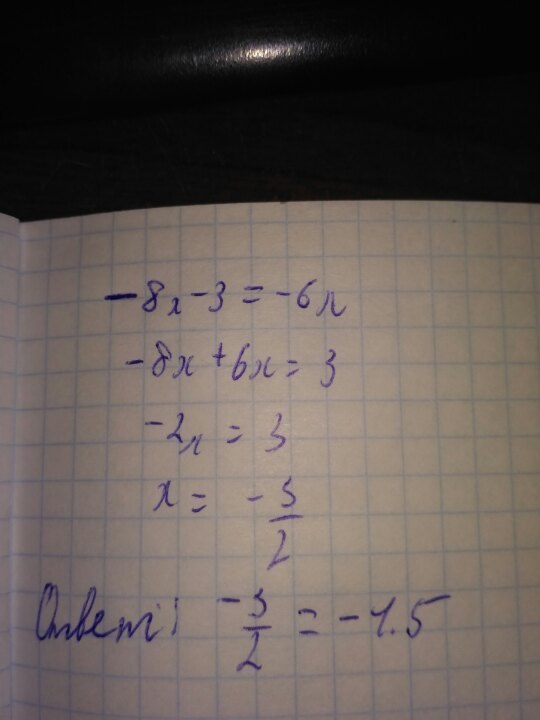 -8x-3=-6x
-8x+6x=3
-2x=3
x=-3/2
Ответ: -3/2=-1.5